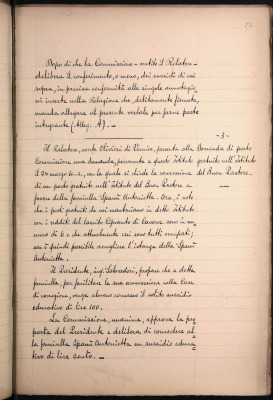 Dopo di che la Commissione - sentito il Relatore -
delibera il conferimento, o meno, dei sussidi di cui
sopra, in precisa conformità alle singole
inserte nella Relazione che, debitamente firmata,
manda allegare al presente verbale per farne parte
integrante (Alleg. A). -
- 3 -
Domanda di posto
gratuito nell'Istituto
del Buon Pastore.
Il Relatore, conte Olivieri di Vernier, presenta alla
Commissione una domanda, pervenuta a questo Istituto
il 24 marzo u. s., con la quale si chiede la concessione
di un posto gratuito nell'Istituto del Buon Pastore a
favore della fanciulla Spanò Antonietta. Ora, è noto
che i posti gratuiti che si mantengono in detto Istituto
con i redditi del lascito sono in nu-
mero di 6 e che attualmente essi sono tutti occupati;
non è quindi possibile accogliere l'istanza della Spanò
Antonietta.
Il Presidente, ing. Salvadori, propone che a detta
fanciulla, per facilitare la sua ammissione nella Casa
di correzione, venga almeno concesso il solito sussidio
educativo di lire 100.
La Commissione, unanime, approva la pro-
posta del Presidente e delibera di concedere al-
la fanciulla Spanò Antonietta un sussidio educa-
tivo di lire cento. -